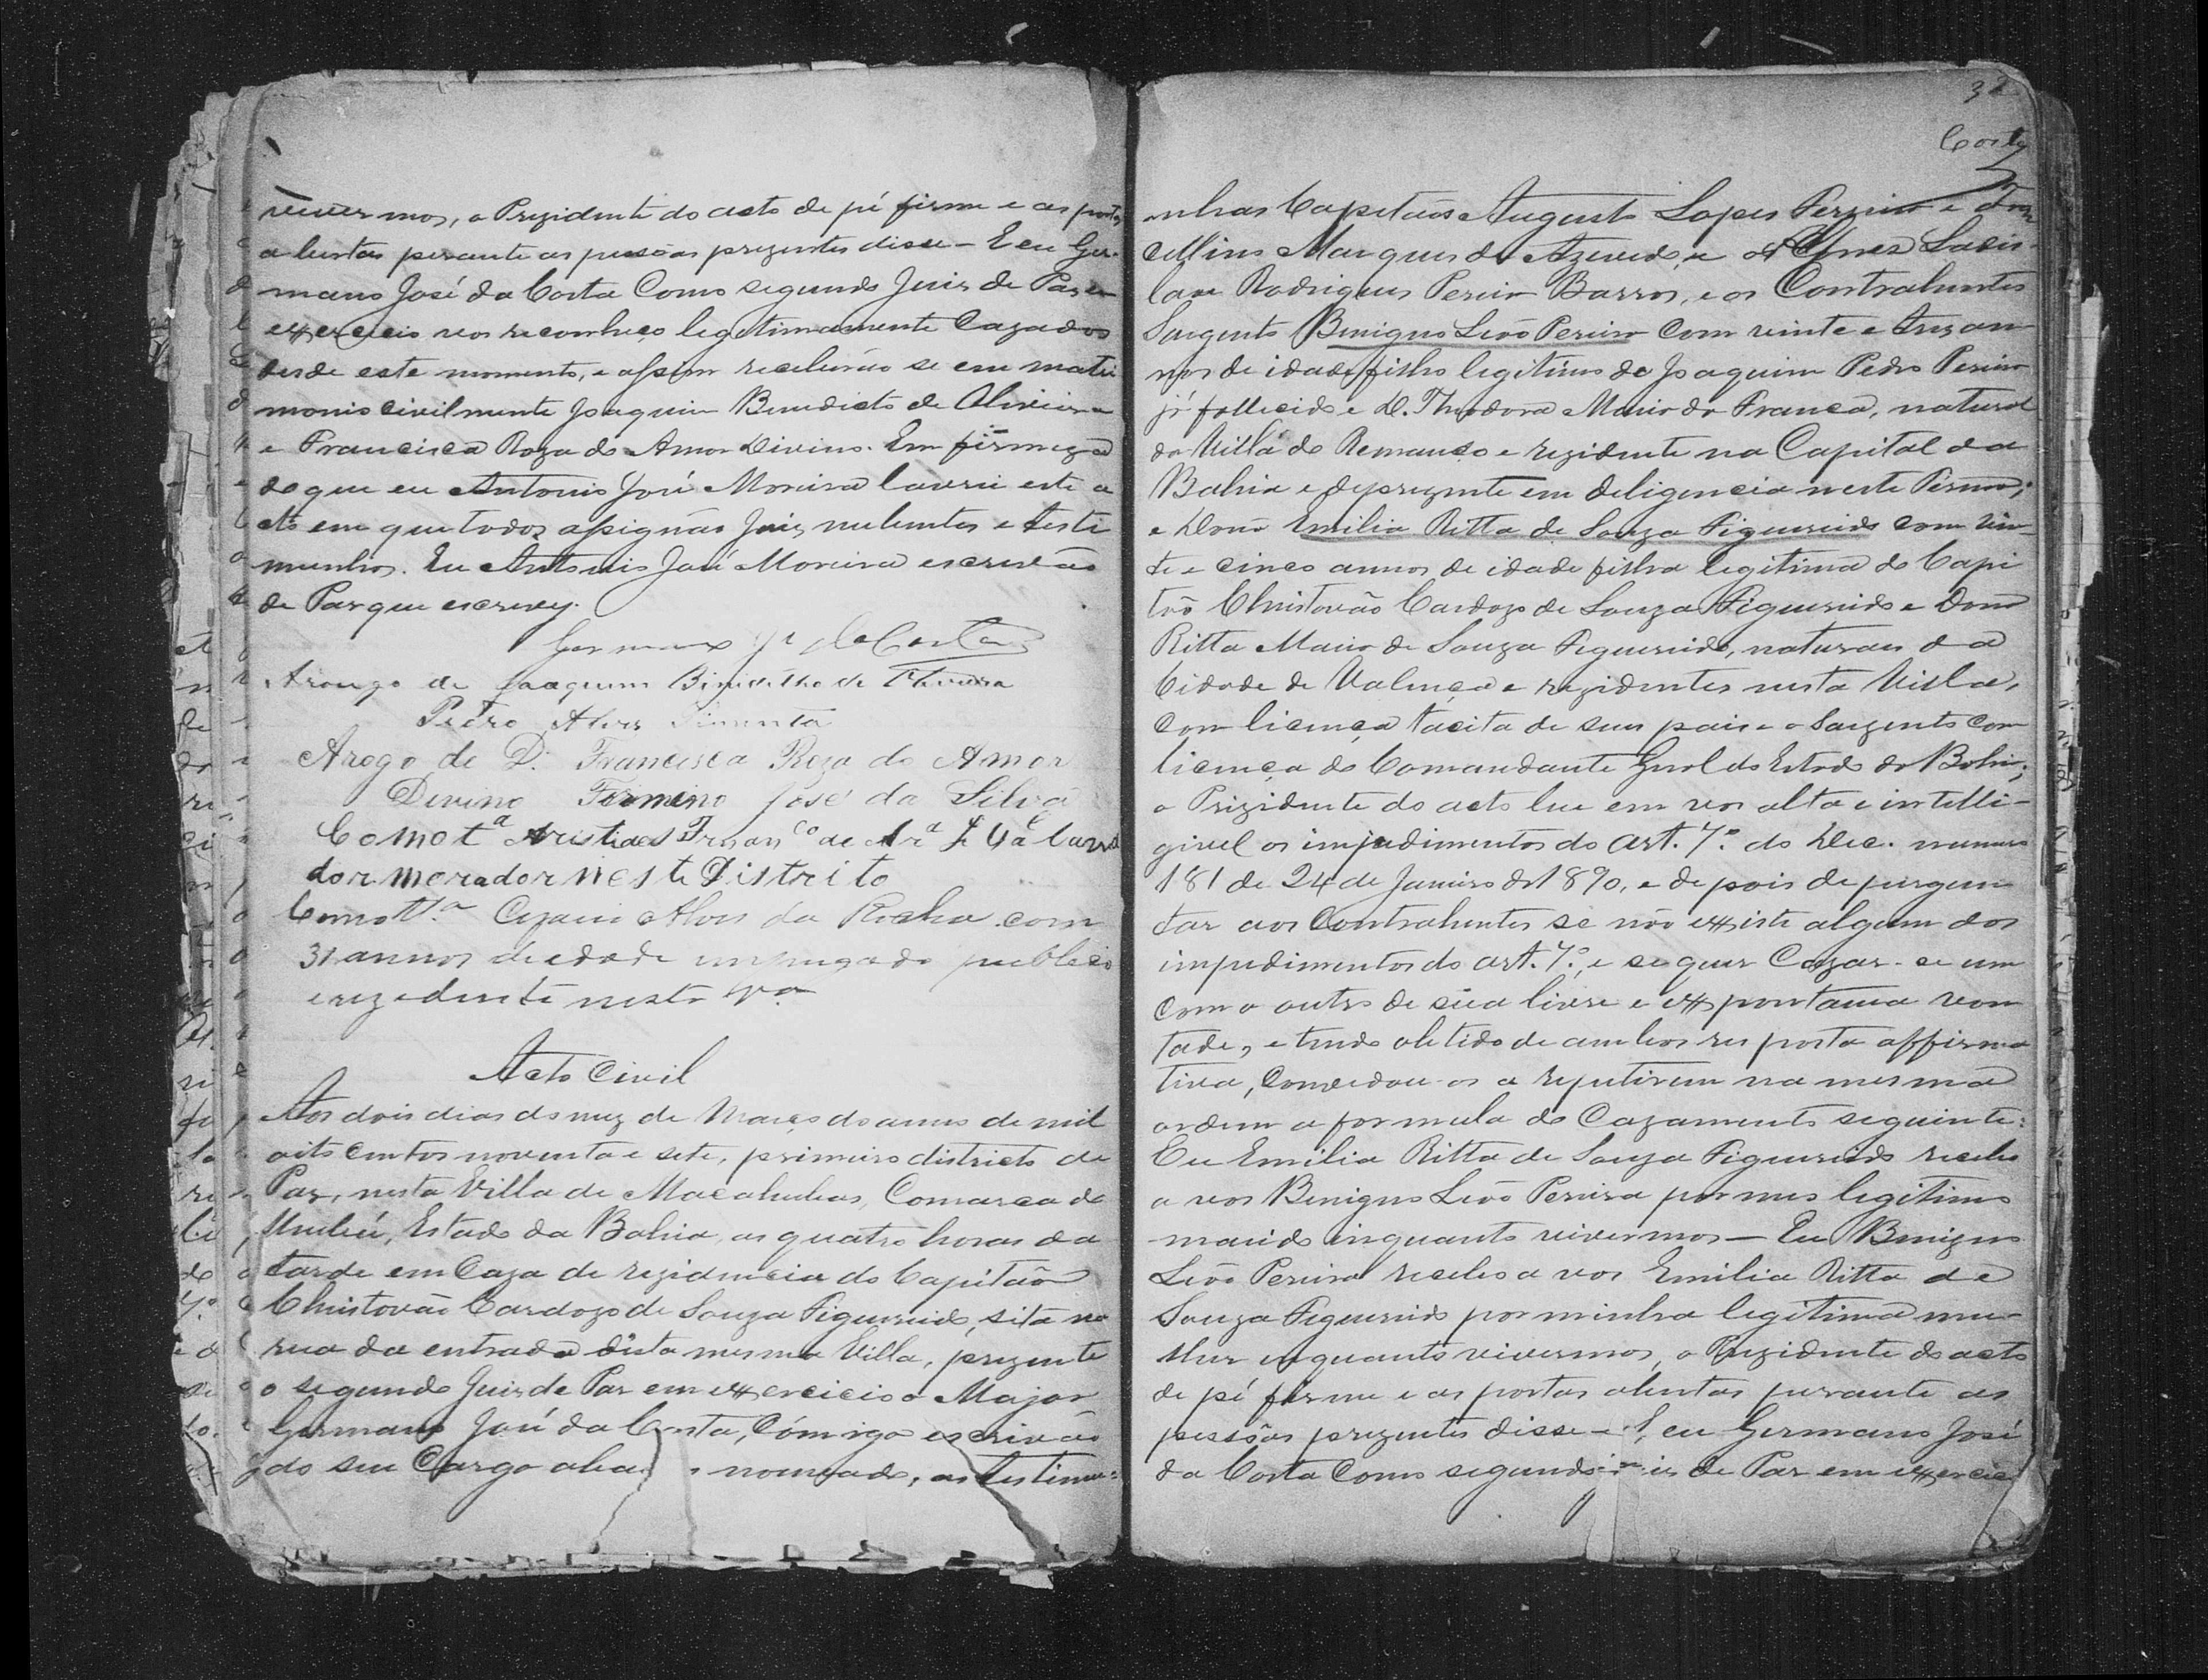 vivermos, o Prezidente do acto de pé firme e as portas
abertas perante as pessôas prezentes disse - E eu Ger-
mano José da Costa Como segundo Juis de Pas em
exercicio vos reconheço legitimamente Cazados
desde este momento, e assim receberão se em matri
monio civilmente Joaquim Benedicto de Oliveira
e Francisca Roza do Amor Divino. Em firmeza
do que eu Antonio José Moreira lavrei este a
cto em que todos assignão Juiz, nubentes e testi
munhas. Eu Antonio José Moreira escrivão
de Pas que escrevy.
Germano Je da Costa
Arougo de Joaquim Binidittho de Oliveira
Pedro Alves Pimenta
Arogo de D. Francisca Roza do Amor
Devino Firmino José da Silva
Como ta Aristides Fran co de
dor morador neste Distrito
Como Tª Cezario Alves da Rocha com
31 annos de edade impregado publico
e rezedente nesta Vª
Acto Civil
Aos dois dias do mez de Março do anno de mil
oito centos noventa e sete, primeiro districto de
Paz, nesta Villa de Macahubas, Comarca de
Urubú, Estado da Bahia, as quatro horas da
tarde em Caza de rezidencia do Capitão
Christovão Cardozo de Souza Figueirido, sita na
rua da entrada désta mesma Villa, prezente
o segundo Juis de Pas em exercicio o Major
Germano José da Costa, Cómigo escrivão
do seu Cargo nomeado, as testimu-
32
Costa
nhas Capitãos Augusto Lopes Pereira e
cellino Marques de Azevedo, e
Rodrigues Pereira Barros, e os Contrahentes
Sargento Benigno Leão Pereira com vinte e tres an
nos de idade, filho legitimo de Joaquim Pedro Pereira
já fallecido e D. Theodora Maria da França, natural
da Villa de Remanso e rezidente na Capital da
Bahia e de prezente em deligencia neste Termo;
e Dona Emilia Ritta de Souza Figueirido com vin-
te e cinco annos de idade filha legitima do Capi
tão Christovão Cardozo de Souza Figueirido e Dona
Ritta Maria de Souza Figueirido, naturaes da
Cidade de Valença e rezidentes nesta Villa,
com licença tácita de seus pais e o Sargento com
licença do Comandante Geral do Estado da Bahia;
o Prizidente do acto leu em vos alta e intelli-
givel os impedimentos do art. 7º do Dec. numero
181 de 24 de Janeiro de 1890, e depois de pergun
tar aos Contrahentes se não existe algum dos
impedimentos do art. 7º, e se quer Cazar-se um
com o outro de sua livre e expontania von
tade, e tendo obtido de ambos resposta affirma
tiva, Convidou-os a repetirem na mesma
ordem a formula do Cazamento seguinte:
Eu Emilia Ritta de Souza Figueirido recebo
a vos Benigno Leão Pereira por meu legitimo
marido inquanto vivermos — Eu Benigno
Leão Pereira recebo a vos Emilia Ritta de
Souza Figueirido por minha legitima mu-
lher inquanto vivermos, o Prezidente do acto
de pé firme e as portas abertas perante as
pessôas prezentes disse - E, eu Germano José
da Costa Como segundo Juis de Pas em exercici